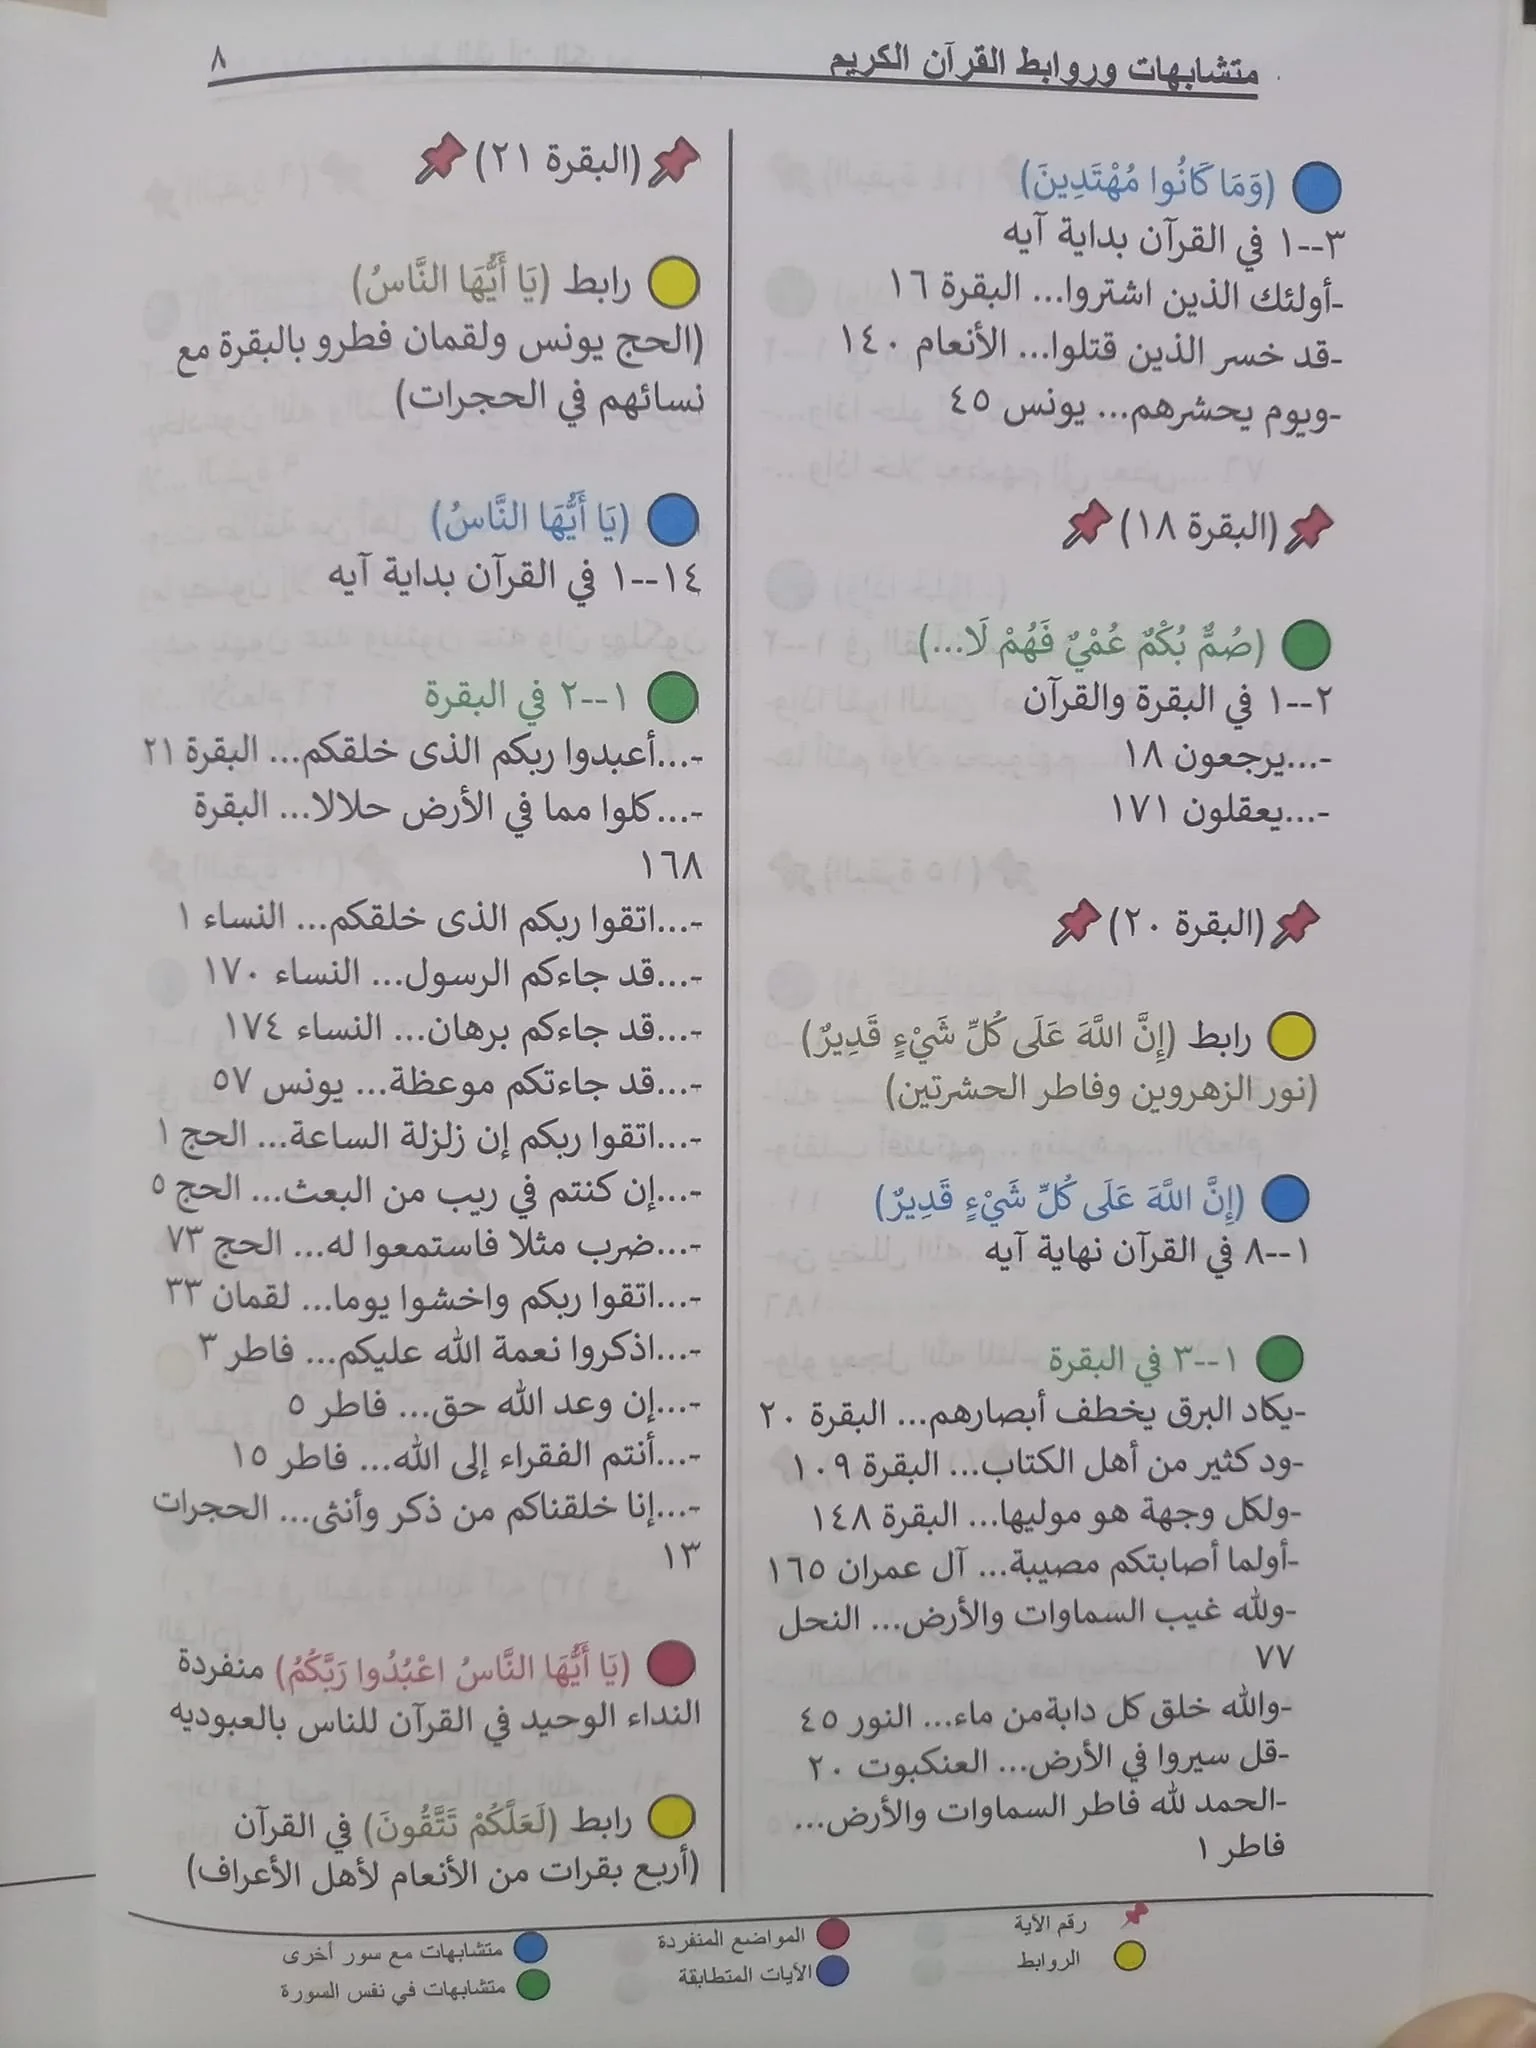 متشابهات وروابط القرآن الكريم
٨
(وَمَا كَانُوا مُهْتَدِينَ)
٣--١ في القرآن بداية آيه
-أولئك الذين اشتروا... البقرة ١٦
-قد خسر الذين قتلوا... الأنعام ١٤٠
-ويوم يحشرهم... يونس ٤٥
(البقرة ١٨)
(صُمٌّ بُكْمٌ عُمْيٌ فَهُمْ لَا...)
٢--١ في البقرة والقرآن
-...يرجعون ١٨
-...يعقلون ١٧١
(البقرة ٢٠)
رابط (إِنَّ اللَّهَ عَلَى كُلِّ شَيْءٍ قَدِيرٌ)
(نور الزهروين وفاطر الحشرتين)
(إِنَّ اللَّهَ عَلَى كُلِّ شَيْءٍ قَدِيرٌ)
١--٨ في القرآن نهاية آيه
١--٣ في البقرة
-يكاد البرق يخطف أبصارهم... البقرة ٢٠
-ود كثير من أهل الكتاب... البقرة ١٠٩
-ولكل وجهة هو موليها... البقرة ١٤٨
-أولما أصابتكم مصيبة... آل عمران ١٦٥
-ولله غيب السماوات والأرض... النحل
٧٧
-والله خلق كل دابةمن ماء... النور ٤٥
-قل سيروا في الأرض... العنكبوت ٢٠
-الحمد لله فاطر السماوات والأرض...
فاطر ١
(البقرة ٢١)
رابط (يَا أَيُّهَا النَّاسُ)
(الحج يونس ولقمان فطرو بالبقرة مع
نسائهم في الحجرات)
(يَا أَيُّهَا النَّاسُ)
١٤--١ في القرآن بداية آيه
١--٢ في البقرة
-...أعبدوا ربكم الذى خلقكم... البقرة ٢١
-...كلوا مما في الأرض حلالا... البقرة
١٦٨
-...اتقوا ربكم الذى خلقكم... النساء ١
-...قد جاءكم الرسول... النساء ١٧٠
-...قد جاءكم برهان... النساء ١٧٤
-...قد جاءتكم موعظة... يونس ٥٧
-...اتقوا ربكم إن زلزلة الساعة... الحج ١
-...إن كنتم في ريب من البعث... الحج ٥
-...ضرب مثلا فاستمعوا له... الحج ٧٣
-...اتقوا ربكم واخشوا يوما... لقمان ٣٣
-...اذكروا نعمة الله عليكم... فاطر ٣
-...إن وعد الله حق... فاطر ٥
-...أنتم الفقراء إلى الله... فاطر ١٥
-...إنا خلقناكم من ذكر وأنثى... الحجرات
١٣
(يَا أَيُّهَا النَّاسُ اعْبُدُوا رَبَّكُمُ) منفردة
النداء الوحيد في القرآن للناس بالعبوديه
رابط (لَعَلَّكُمْ تَتَّقُونَ) في القرآن
(أربع بقرات من الأنعام لأهل الأعراف)
رقم الآية
الروابط
المواضع المنفردة
الآيات المتطابقة
متشابهات مع سور أخرى
متشابهات في نفس السورة